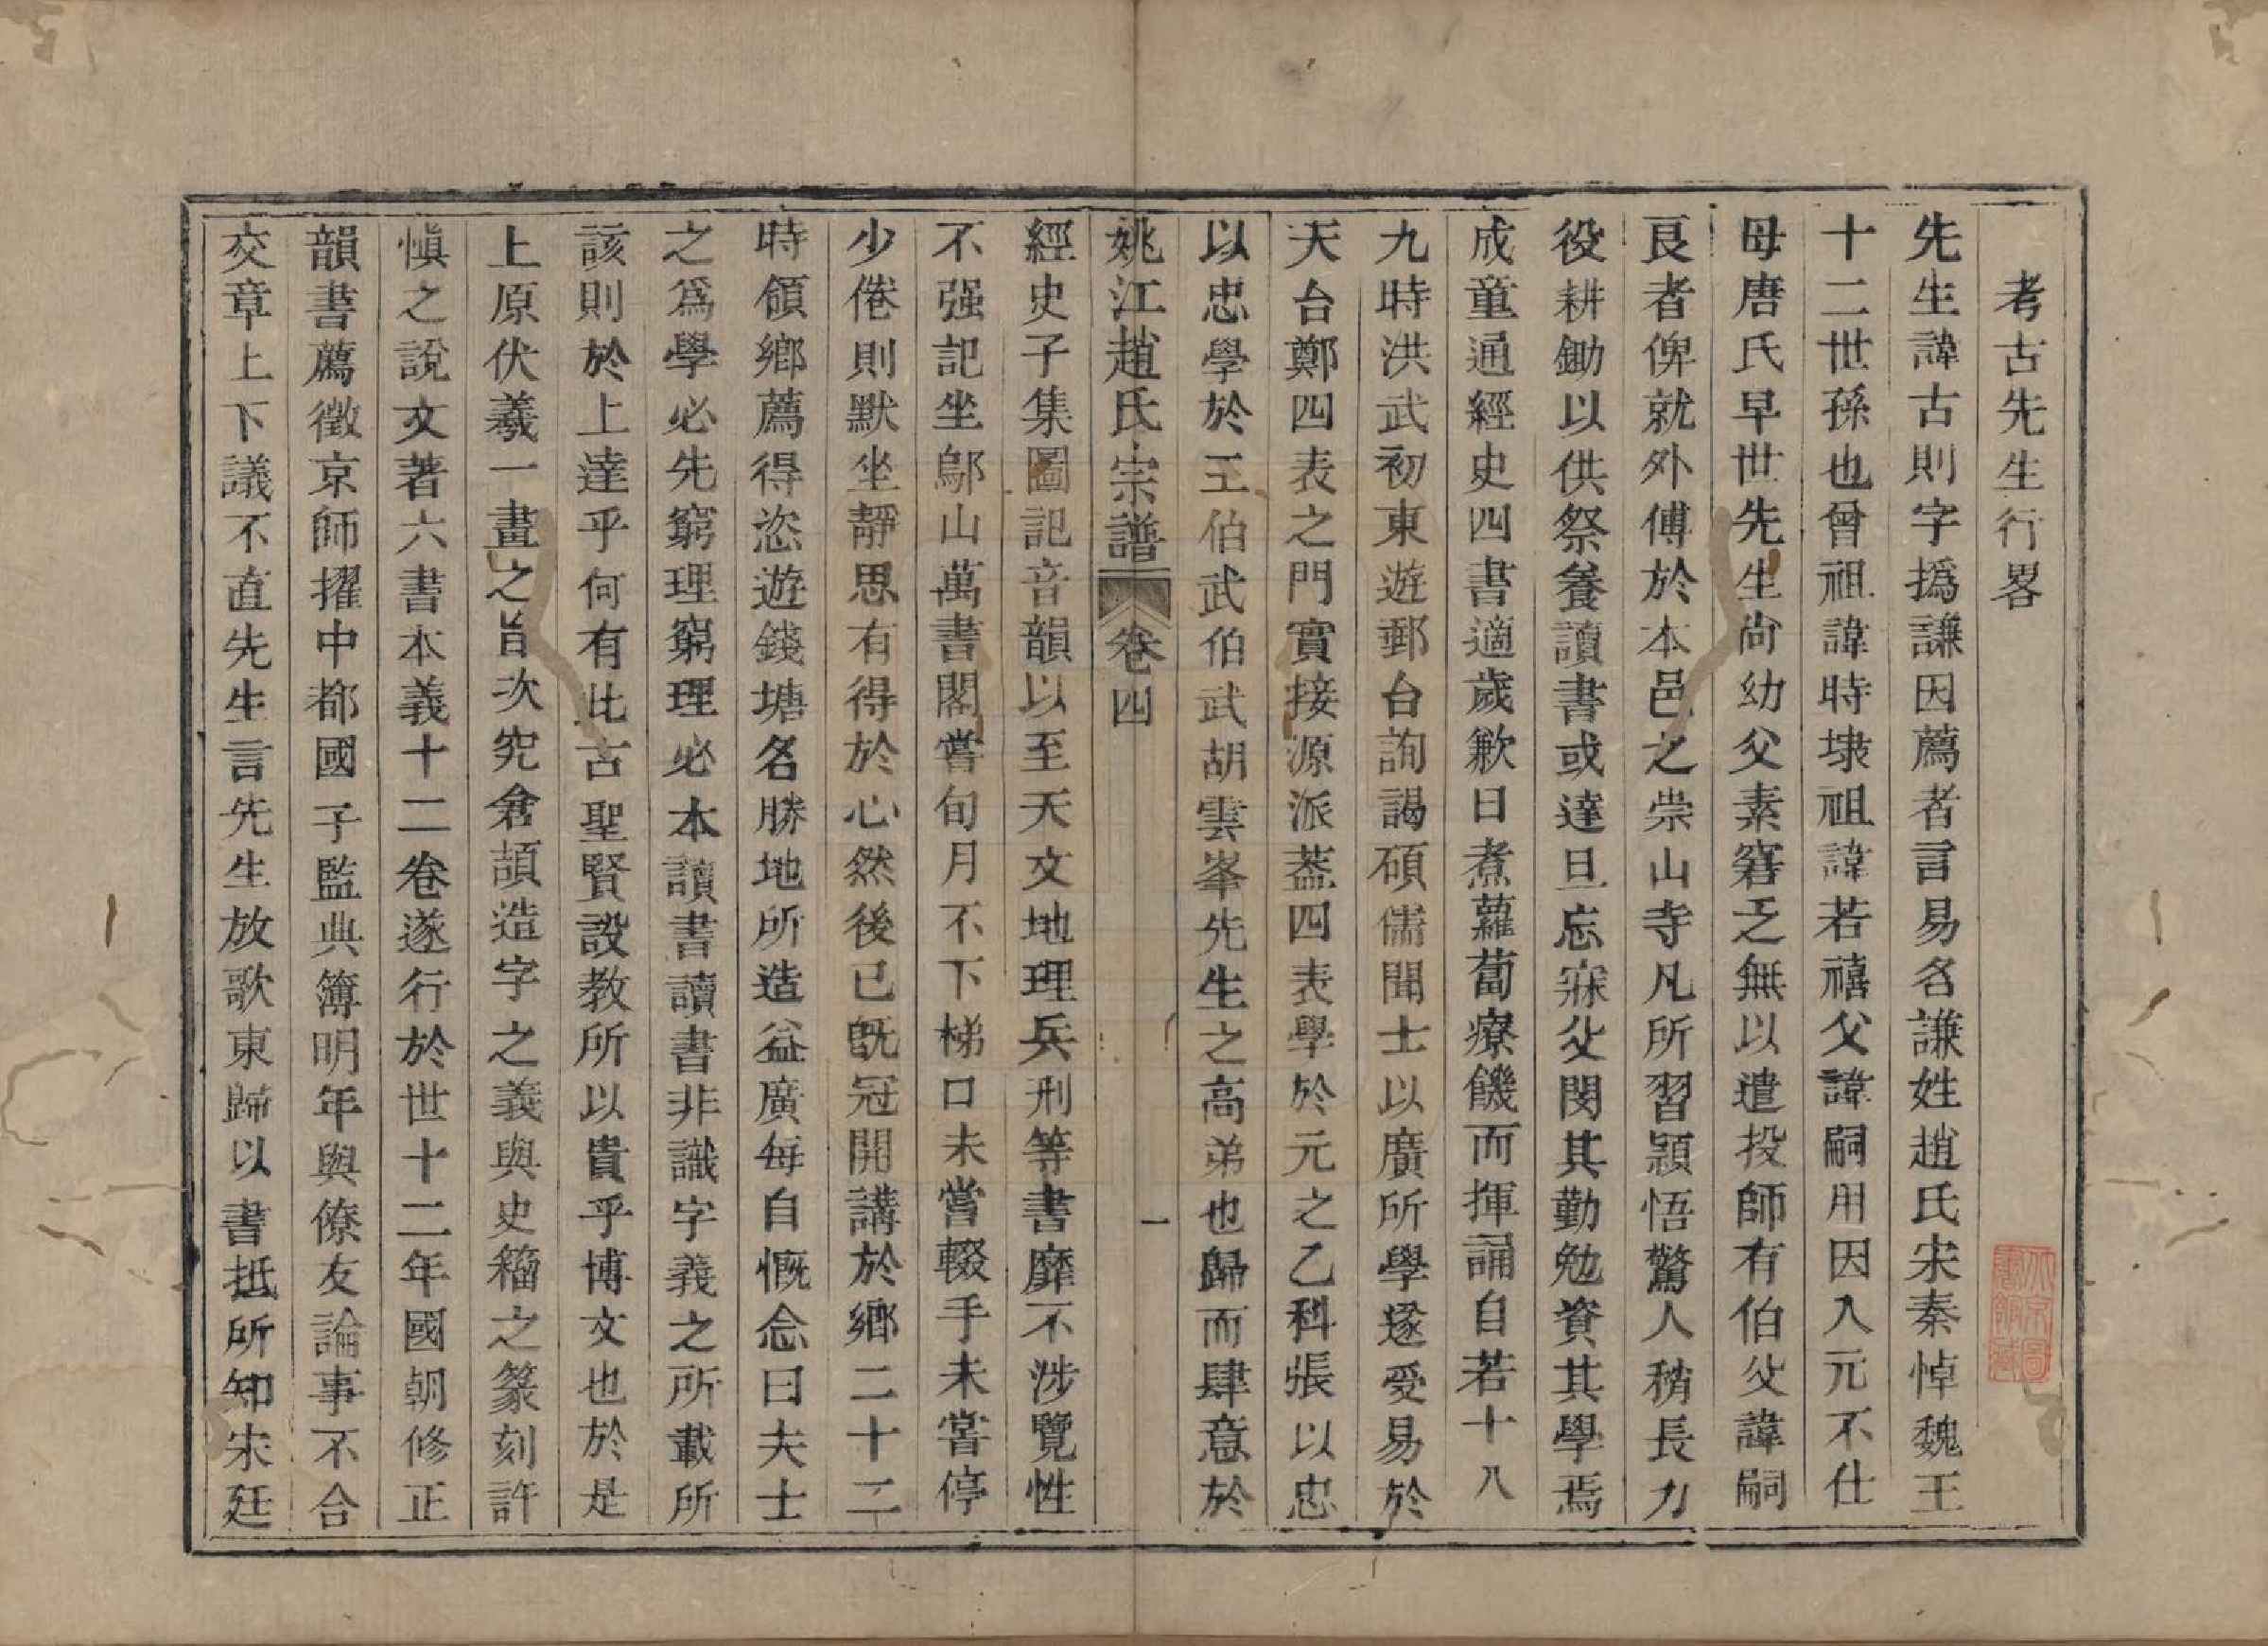 考古先生行畧
先生諱古則字撝謙因薦者言易名謙姓趙氏宋秦悼魏王
十二世孫也曾祖諱時埭祖諱若禧父諱嗣用因入元不仕
母唐氏早世先生尚幼父素窘乏無以遣投師有伯父諱嗣
良者俾就外傅於本邑之崇山寺凡所習穎悟驚人稍長力
役耕鋤以供祭養讀書或達旦忘寐父閔其勤勉資其學焉
成童通經史四書適歲歉日煮蘿蔔療饑而揮誦自若十八
九時洪武初東遊鄞台詢謁碩儒聞士以廣所學遂受易於
天台鄭四表之門實接源派葢四表學於元之乙科張以忠
以忠學於王伯武伯武胡雲峯先生之高弟也歸而肆意於
姚江趙氏宗譜 卷四 一
經史子集圖記音韻以至天文地理兵刑等書靡不涉覽性
不强記坐鄔山萬書閣嘗旬月不下梯口未嘗輟手未嘗停
少倦則默坐靜思有得於心然後已旣冠開講於鄉二十二
時領鄉薦得恣遊錢塘名勝地所造益廣每自慨念曰夫士
之爲學必先窮理窮理必本讀書讀書非識字義之所載所
該則於上達乎何有此古聖賢設教所以貴乎博文也於是
上原伏羲一畫之旨次究倉頡造字之義與史籀之篆刻許
愼之說文著六書本義十二卷遂行於世十二年國朝修正
韻書薦徵京師擢中都國子監典簿明年與僚友論事不合
交章上下議不直先生言先生放歌東歸以書抵所知宋廷